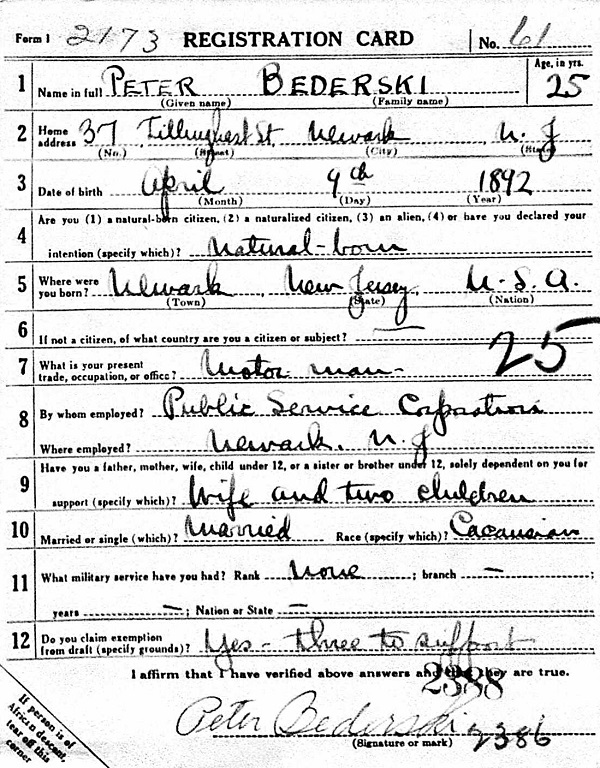 Form 1 2173 REGISTRATION CARD No. 61
1 Name in full PETER BEDERSKI Age, in yrs. 25
(Given name) (Family name)
2 Home address 37 Tillinghest St Newark N. J
(No.) (Street) (City) (State)
3 Date of birth April 9th 1892
(Month) (Day) (Year)
4 Are you (1) a natural-born citizen, (2) a naturalized citizen, (3) an alien, (4) or have you declared your
intention (specify which)? Natural-born
5 Where were you born? Newark, New Jersey, U. S. A.
(Town) (State) (Nation)
6 If not a citizen, of what country are you a citizen or subject? —
7 What is your present trade, occupation, or office? Motor man - 25
8 By whom employed? Public Service Corporation
Where employed? Newark. N. J
9 Have you a father, mother, wife, child under 12, or a sister or brother under 12, solely dependent on you for
support (specify which)? Wife and two children
10 Married or single (which)? Married Race (specify which)? Cacausian
11 What military service have you had? Rank None ; branch — ;
years — ; Nation or State —
12 Do you claim exemption from draft (specify grounds)? Yes - three to support
I affirm that I have verified above answers and that they are true.
2388
Peter Bederski 2386
(Signature or mark)
If person is of
African descent,
tear off this
corner